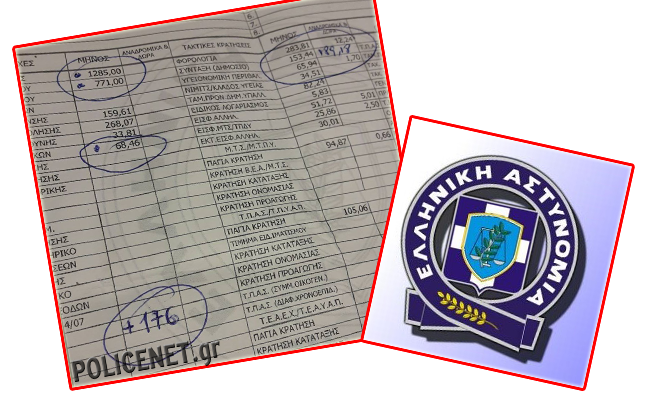 6.
7.
8.
ΜΗΝΟΣ ΑΝΑΔΡΟΜΙΚΑ & ΔΩΡΑ ΤΑΚΤΙΚΕΣ ΚΡΑΤΗΣΕΙΣ ΜΗΝΟΣ ΑΝΑΔΡΟΜΙΚΑ & ΔΩΡΑ
1285,00 ΦΟΡΟΛΟΓΙΑ 283,81 12,24
771,00 ΣΥΝΤΑΞΗ (ΔΗΜΟΣΙΟ) 153,44 1,70
ΥΓΕΙΟΝΟΜΙΚΗ ΠΕΡΙΘΑΛ. 65,94
ΝΙΜΙΤΣ/ΚΛΑΔΟΣ ΥΓΕΙΑΣ 34,51
159,61 ΤΑΜ.ΠΡΟΝ.ΔΗΜ.ΥΠΑΛΛ. 82,24
268,07 ΕΙΔΙΚΟΣ ΛΟΓΑΡΙΑΣΜΟΣ 5,83
33,81 ΕΙΣΦ.ΑΛΛΗΛ. 51,72 5,01
68,46 ΕΙΣΦ.ΜΤΣ/ΤΠΔΥ 25,86 2,50
ΕΚΤ.ΕΙΣΦ.ΑΛΛΗΛ. 30,01
Μ.Τ.Σ./Μ.Τ.Π.Υ. 94,87 0,66
ΠΑΓΙΑ ΚΡΑΤΗΣΗ
ΚΡΑΤΗΣΗ Β.Ε.Α./Μ.Τ.Σ.
ΚΡΑΤΗΣΗ ΚΑΤΑΤΑΞΗΣ
ΚΡΑΤΗΣΗ ΟΝΟΜΑΣΙΑΣ
ΚΡΑΤΗΣΗ ΠΡΟΑΓΩΓΗΣ
Τ.Π.Α.Σ./Τ.Π.Υ.Α.Π. 105,06
ΠΑΓΙΑ ΚΡΑΤΗΣΗ
ΤΙΜΗΜΑ ΕΙΔ.ΙΜΑΤΙΣΜΟΥ
ΚΡΑΤΗΣΗ ΚΑΤΑΤΑΞΗΣ
ΚΡΑΤΗΣΗ ΟΝΟΜΑΣΙΑΣ
ΚΡΑΤΗΣΗ ΠΡΟΑΓΩΓΗΣ
4/07 Τ.Π.Α.Σ. (ΣΥΜΜ.ΟΙΚΟΓΕΝ.)
+176 Τ.Π.Α.Σ. (ΔΙΑΦ.ΧΡΟΝΟΕΠΙΔ.)
Τ.Ε.Α.Ε.Χ./Τ.Ε.Α.Υ.Α.Π.
ΠΑΓΙΑ ΚΡΑΤΗΣΗ
ΚΡΑΤΗΣΗ ΚΑΤΑΤΑΞΗΣ
POLICENET.gr
ΕΛΛΗΝΙΚΗ ΑΣΤΥΝΟΜΙΑ